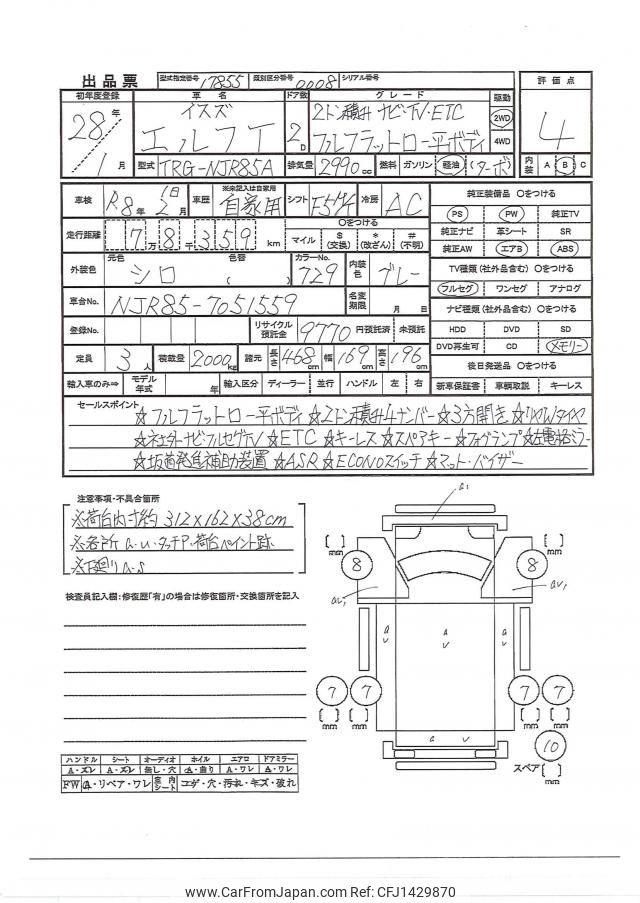 出品票 型式指定番号 17855 類別区分番号 0008 シリアル番号
初年度登録 車名 ドア数 グレード 駆動 評価点
28年 イスズ 2トン積み ナビ・TV・ETC 2WD
エルフT 2D フルフラットロー平ボディ 4WD 4
1月 型式 TRG-NJR85A 排気量 2990cc 燃料 ガソリン 軽油 (ターボ) 内装 A B C
車検 R8年2月1日 車歴 ※未記入は自家用 自家用 シフト F5 冷房 AC 純正装備品 〇をつける
PS PW 純正TV
走行距離 7万8千359km 〇をつける マイル $(交換) *(改ざん) #(不明) 純正ナビ 革シート SR
純正AW エアB ABS
外装色 元色 シロ 色替 ( ) カラーNo. 729 内装色 グレー TV種類(社外品含む) 〇をつける
フルセグ ワンセグ アナログ
車台No. NJR85-7051559 名変期限 月 日 ナビ種類(社外品含む) 〇をつける
登録No. リサイクル預託金 9770 円預託済 未預託 HDD DVD SD
DVD再生可 CD メモリー
定員 3人 積載量 2000kg 諸元 長さ 468cm 幅 169cm 高さ 196cm 後日発送品 〇をつける
輸入車のみ⇒ モデル年式 年 輸入区分 ディーラー 並行 ハンドル 左 右 新車保証書 車輌取説 キーレス
セールスポイント
☆フルフラットロー平ボディ☆2トン積み4ナンバー☆3方開き☆リヤWタイヤ
☆社外ナビ・フルセグTV☆ETC☆キーレス☆スペアキー☆フォグランプ☆左電格ミラー
☆坂道発進補助装置☆ASR☆ECONOスイッチ☆マット・バイザー
注意事項・不具合箇所
※荷台内寸約 312×162×38cm
※各所 a.u.タッチア・荷台ペイント跡
※下廻りa.s
検査員記入欄:修復歴「有」の場合は修復箇所・交換箇所を記入
a1
[ ] mm [ ] mm
8 8
au1 au1
a v a v a v
7 7 7 7
[ ] mm [ ] mm [ ] mm [ ] mm
a v
10
スペア [ ] mm
ハンドル シート オーディオ ホイル エアロ ドアミラー
A・ズレ A・ズレ 無し・穴 A・曲り A・ワレ A・ワレ
FW A・リペア・ワレ 室内シート コゲ・穴・汚れ・キズ・破れ
www.CarFromJapan.com Ref: CFJ1429870